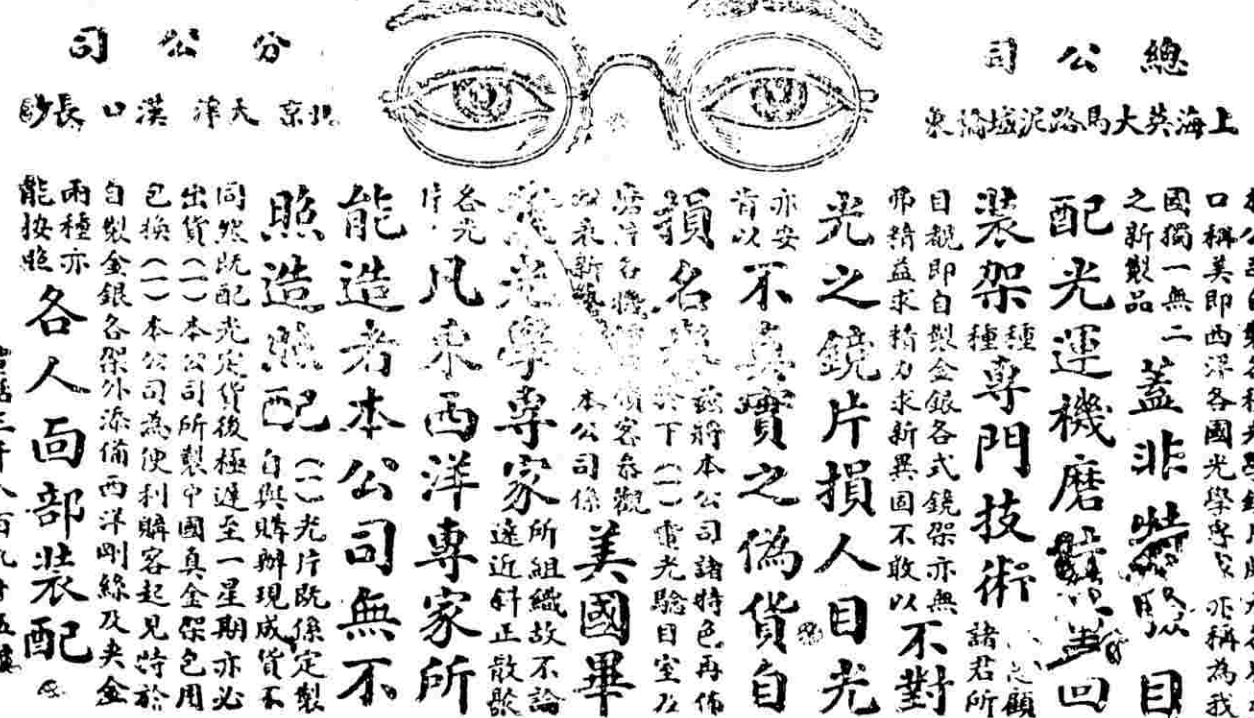 總公司
上海英大馬路泥城橋東
分公司
北京 天津 漢口 長沙
口稱美即西洋各國光學專家亦稱為我
國獨一無二
之新製品
蓋非驗目
配光運機磨
裝架種種專門技術
惠顧
諸君所
目覩即自製金銀各式鏡架亦無
弗精益求精力求新異固不敢以
不對
光之鏡片損人目光
亦安
肯以
不真實之偽貨自
損名譽
茲將本公司諸特色再佈
於下(一)電光驗目室及
磨片各機顧客參觀
本公司係
美國畢
業光學專家
所組織故不論
遠近斜正散
各光
片
凡東西洋專家所
能造者本公司無不
照造照配
(一)光片既係定製
自與購辦現成貨不
同然既配光定貨後極遲至一星期亦必
出貨(一)本公司所製中國真金架包用
包換(一)本公司為便利購客起見特於
自製金銀各架外添備西洋剛絲及夾金
兩種亦
能按照
各人面部裝配